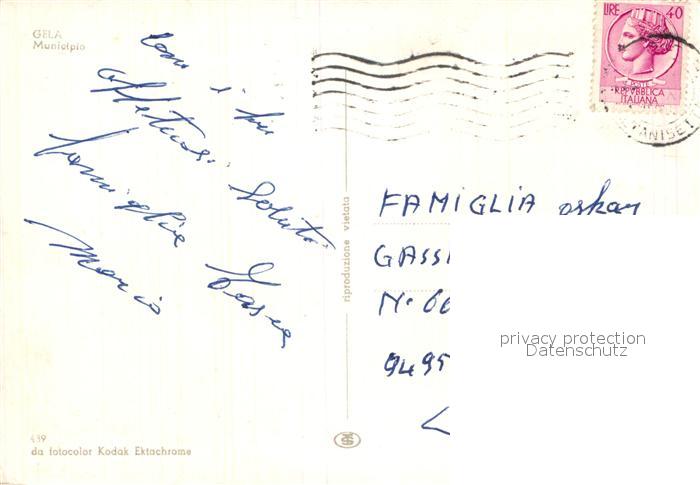 GELA
Municipio
con i più
affettuosi saluti
famiglia
Mario
439
da fotocolor Kodak Ektachrome
riproduzione vietata
LIRE 40
POSTE
REPVBBLICA
ITALIANA
FAMIGLIA oskar
GASSI
N. 60
9495
privacy protection
Datenschutz